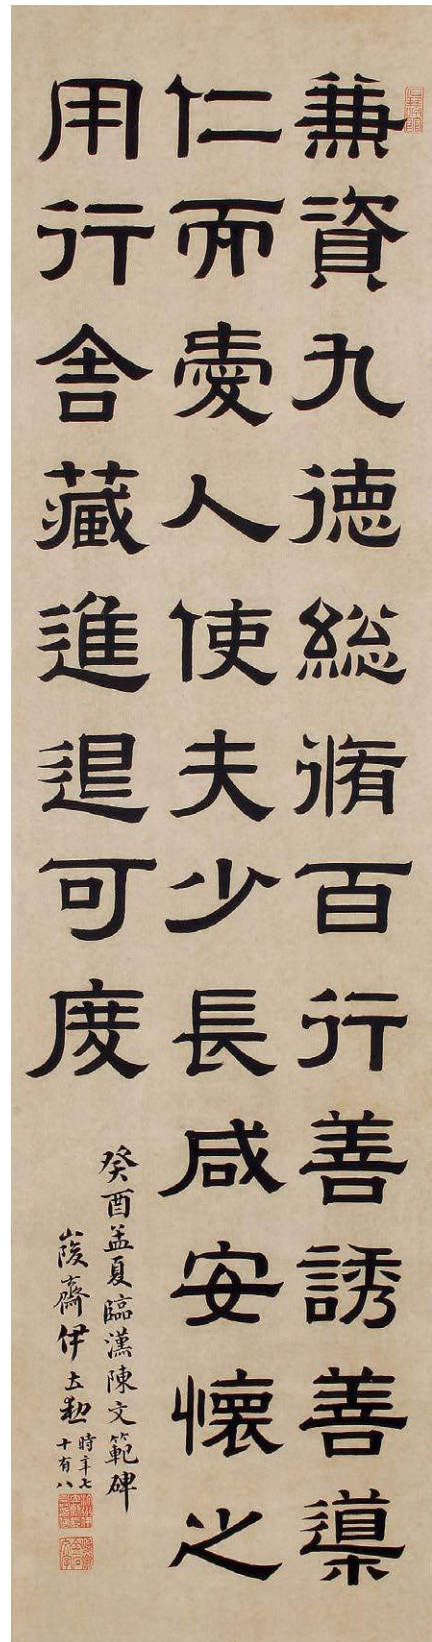 兼資九德總脩百行善誘善導
仁而愛人使夫少長咸安懷之
用行舍藏進退可度
癸酉孟夏臨漢陳文範碑
峻齋伊立勳
時年七
十有八